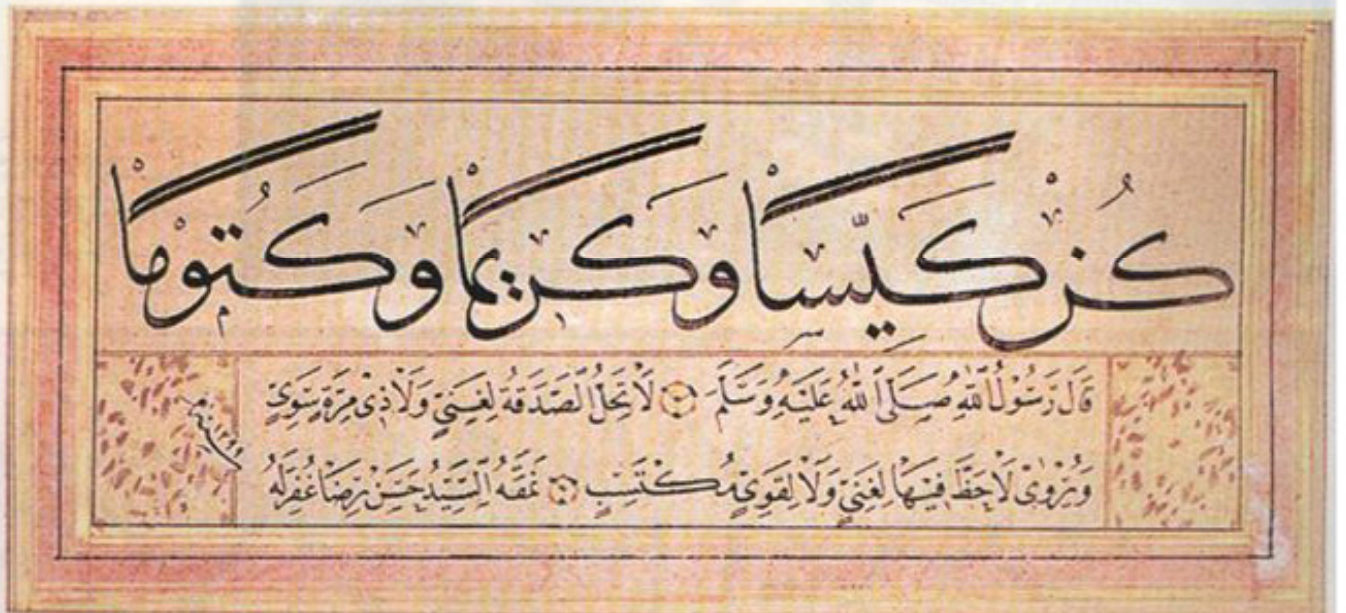 كُنْ كَيِّسًا وَكَرِيمًا وَكَتُومًا
قَالَ رَسُولُ اللّٰهِ صَلَّى اللّٰهُ عَلَيْهِ وَسَلَّمَ لَا تَحِلُّ الصَّدَقَةُ لِغَنِيٍّ وَلَا ذِى مِرَّةٍ سَوِيٍّ
وَيُرْوٰى لَا حَظَّ فِيهَا لِغَنِيٍّ وَلَا لِقَوِيٍّ مُكْتَسِبٍ نَمَقَهُ السَّيِّدُ حَسَنْ رِضَا غُفِرَلَهُ